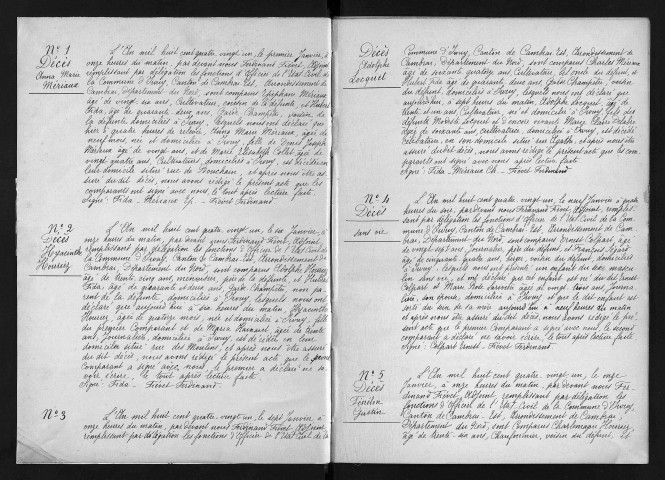 N° 1
Décès
Anna Marie
Mériaux
L'An mil huit cent quatre vingt un, le premier Janvier, à
onze heures du matin, par devant nous Ferdinand Fiévet, Adjoint,
remplissant par délégation les fonctions d'Officier de l'Etat Civil de
la Commune d'Iwuy, Canton de Cambrai Est, Arrondissement de
Cambrai, Département du Nord, sont comparus Epiphane Mériaux
âgé de vingt six ans, cultivateur, cousin de la défunte, et Hubert
Fida, âgé de quarante deux ans, Garde Champêtre, voisin de
la défunte domiciliés à Iwuy, lesquels nous ont déclaré que
hier à quatre heures de relevée, Anna Marie Mériaux, âgée de
neuf mois, née et domiciliée à Iwuy, fille de Denis Joseph
Mériaux âgé de vingt ans, et de Marie Elisabeth âgée de
vingt quatre ans, Cultivateurs, domiciliés à Iwuy, est décédée en
leur domicile situé rue de Bouchain, et après nous être as-
suré du dit décès, nous avons rédigé le présent acte que les
comparants ont signé avec nous, le tout après lecture faite.
Signé: Fida - Mériaux Ep. - Fiévet Ferdinand
N° 2
Décès
Hyacinthe
L'An mil huit cent quatre vingt un, le six Janvier, à
onze heures du matin, par devant nous Ferdinand Fiévet, Adjoint,
remplissant par délégation les fonctions d'Officier de l'Etat Civil de
la Commune d'Iwuy, Canton de Cambrai Est, Arrondissement de
Cambrai, Département du Nord, sont comparus Adolphe
âgé de trente cinq ans, menuisier, père de la défunte, et Hubert
Fida, âgé de quarante et deux ans, Garde Champêtre, non pa-
rent de la défunte, domiciliés à Iwuy, lesquels nous ont
déclaré que aujourd'hui à six heures du matin, Hyacinthe
âgée de quatre mois, née et domiciliée à Iwuy, fille
du premier Comparant et de Maria âgée de trente
ans, Journalière, domiciliés à Iwuy, est décédée en leur
domicile situé rue des Moulins, et après nous être assuré
du dit décès, nous avons rédigé le présent acte que le
Comparant a signé avec nous, le premier a déclaré ne sa-
voir écrire, le tout après lecture faite.
Signé: Fida - Fiévet Ferdinand
N° 3
L'An mil huit cent quatre vingt un, le sept janvier, à
onze heures du matin, par devant nous Ferdinand Fiévet Adjoint
remplissant par délégation les fonctions d'Officier de l'Etat Civil de la
Décès
Adolphe
Locquet
Commune d'Iwuy, Canton de Cambrai Est, Arrondissement de
Cambrai, Département du Nord, sont comparus Charles Mériaux
âgé de soixante quatorze ans, Cultivateur, du défunt, et
Hubert Fida âgé de quarante deux ans, Garde Champêtre, voisin
du défunt, domiciliés à Iwuy, lesquels nous ont déclaré que
aujourd'hui, à sept heures du matin, Adolphe Locquet, âgé de
trente et un ans, Cultivateur, né et domicilié à Iwuy, fils des
défunts
âgée de soixante ans, cultivatrice, domiciliée à Iwuy, est décédé
Célibataire, en son domicile situé et après nous être
assuré du dit décès, nous avons rédigé le présent acte que les com-
parants ont signé avec nous après lecture faite.
Signé: Fida - Mériaux Ch. - Fiévet Ferdinand
N° 4
Décès
sans vie
L'An mil huit cent quatre vingt un, le neuf Janvier à quatre
heures du soir, par devant nous Ferdinand Fiévet, Adjoint, remplis-
sant par délégation les fonctions d'Officier de l'Etat Civil de la Com-
mune d'Iwuy, Canton de Cambrai Est, Arrondissement de Cam-
brai, Département du Nord, sont comparus Ernest Colpart, âgé
de vingt-sept ans, Journalier, père du défunt, et François
âgé de cinquante quatre ans, du défunt, domiciliés
à Iwuy, lesquels nous ont présenté un enfant du sexe mascu-
lin sans vie, et ont déclaré que cet enfant est né du dit Ernest
Colpart et Marie Rode âgée de vingt trois ans, Journa-
lière, son épouse, domiciliés à Iwuy et que le dit enfant est
sorti du sein de sa mère aujourd'hui à neuf heures du matin
et après nous être assuré du dit décès, nous avons rédigé le pré-
sent acte que le premier Comparant a signé avec nous, le second
comparant a déclaré ne savoir écrire, le tout après lecture faite.
Signé: Colpart Ernest - Fiévet Ferdinand
N° 5
Décès
Fénelon
Gustin
L'An mil huit cent quatre vingt un, le onze
Janvier, à onze heures du matin, par devant nous Fer-
dinand Fiévet, Adjoint, remplissant par délégation les
fonctions d'Officier de l'Etat Civil de la Commune d'Iwuy,
Canton de Cambrai Est, Arrondissement de Cambrai,
Département du Nord, sont comparus Charlemagne
âgé de trente six ans, Chaufournier, voisin du défunt, et